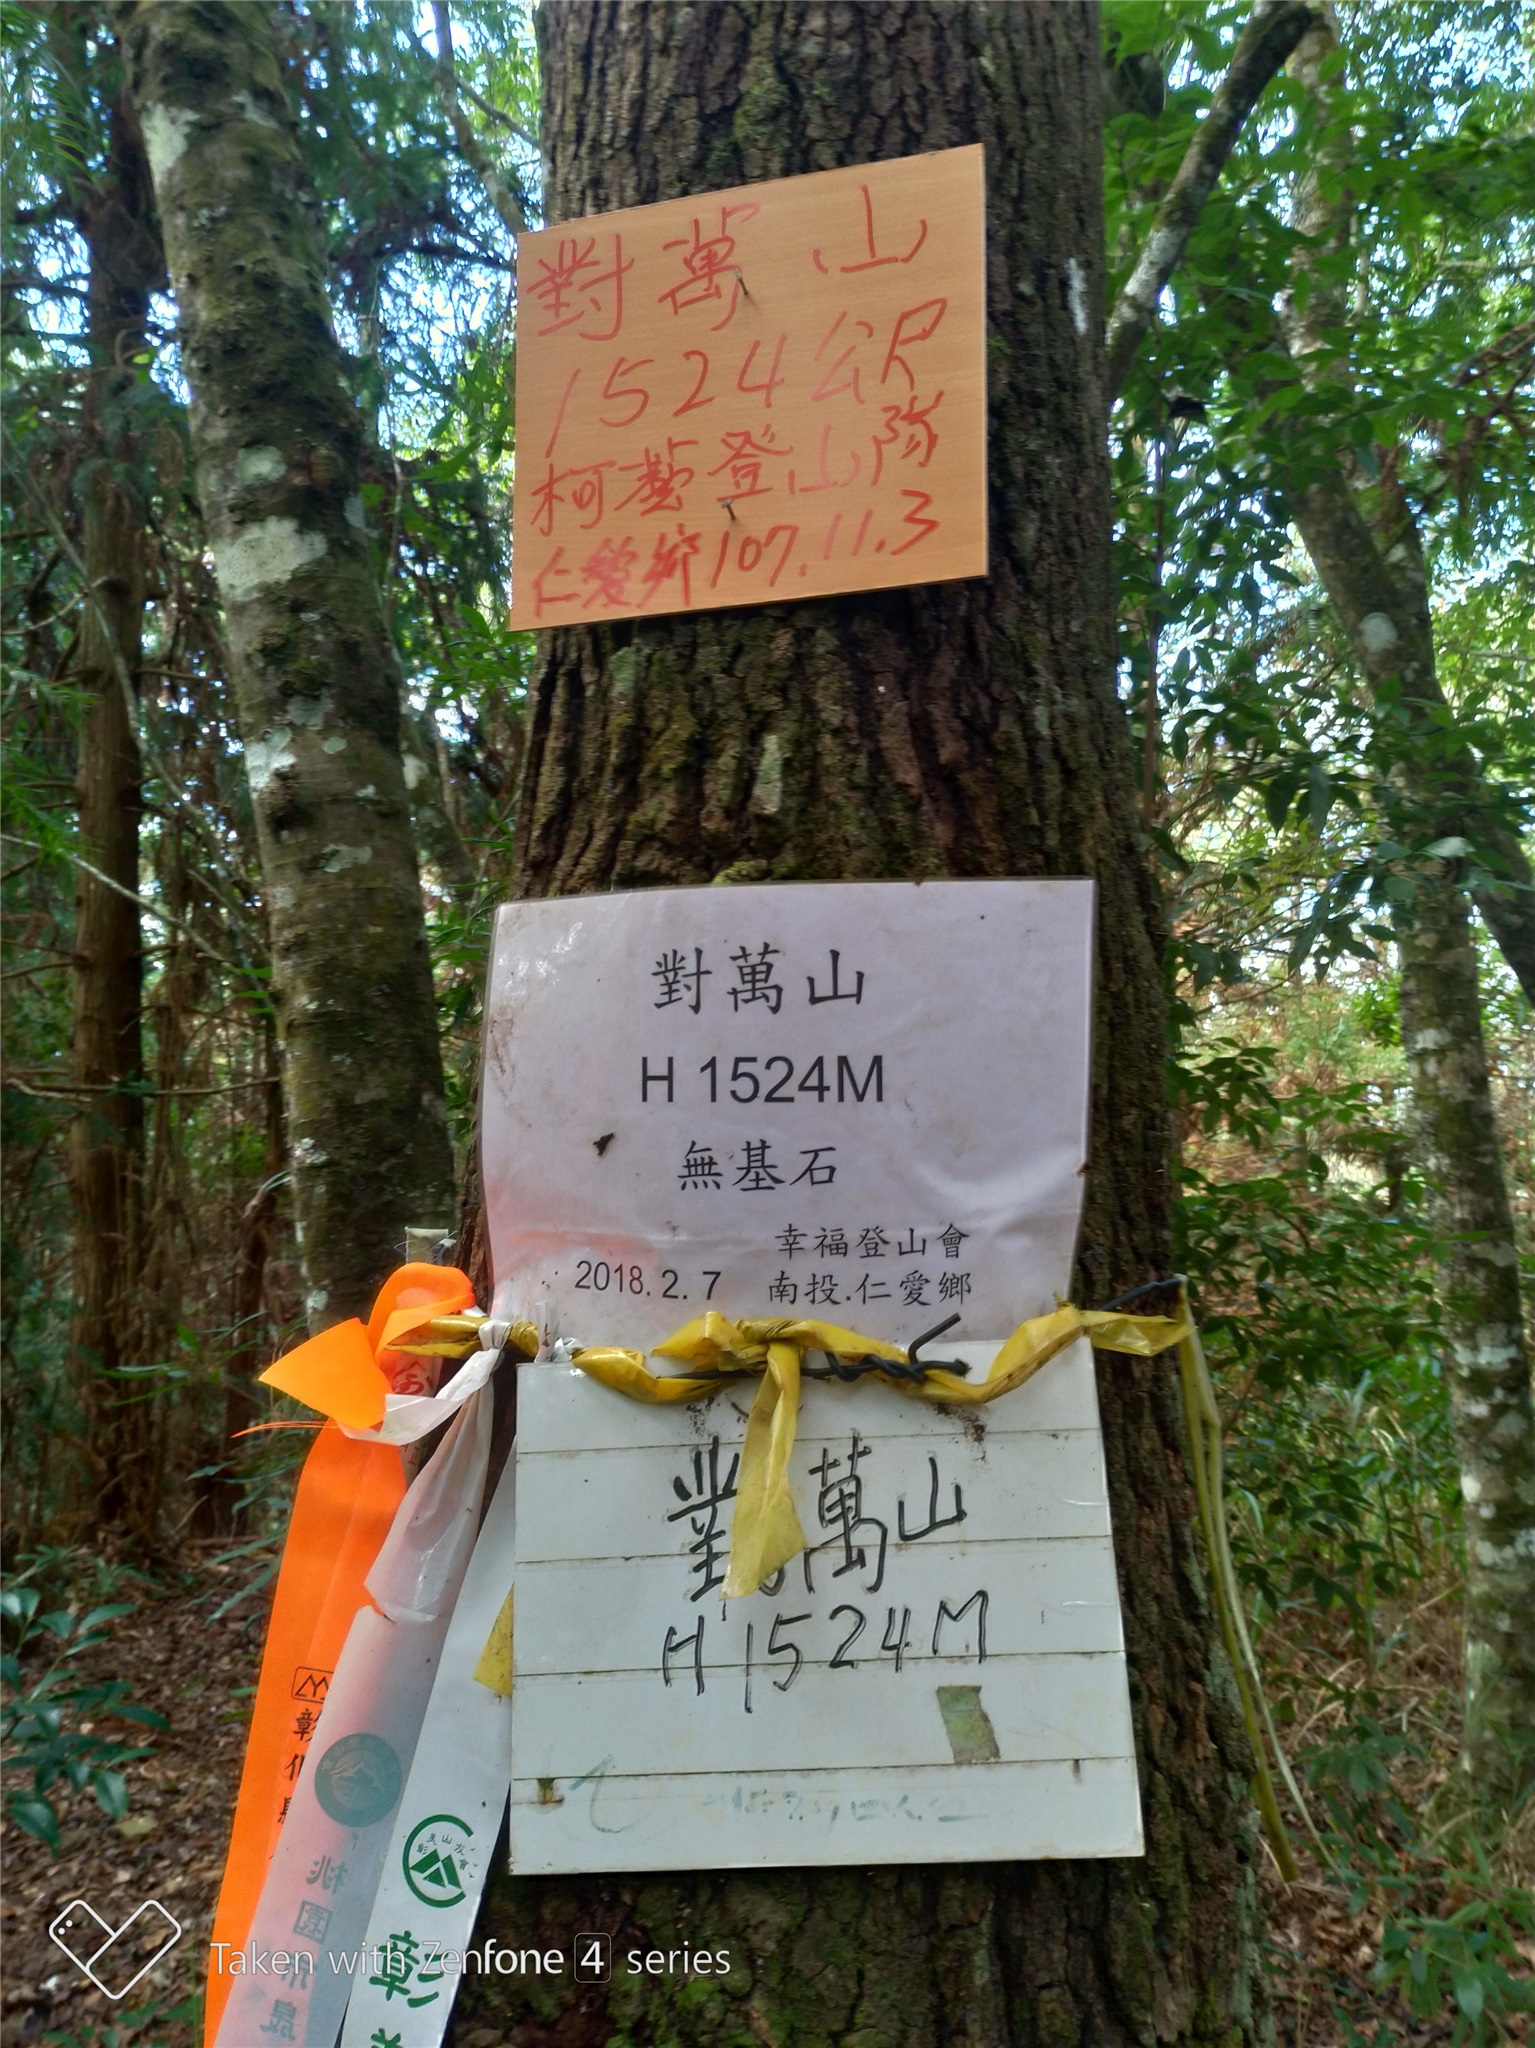 對萬山
1524公尺
柯藝登山隊
仁愛鄉107.11.3
對萬山
H 1524M
無基石
幸福登山會
2018.2.7 南投.仁愛鄉
對萬山
H1524M
彰化
桃園
彰
Taken with Zenfone 4 series